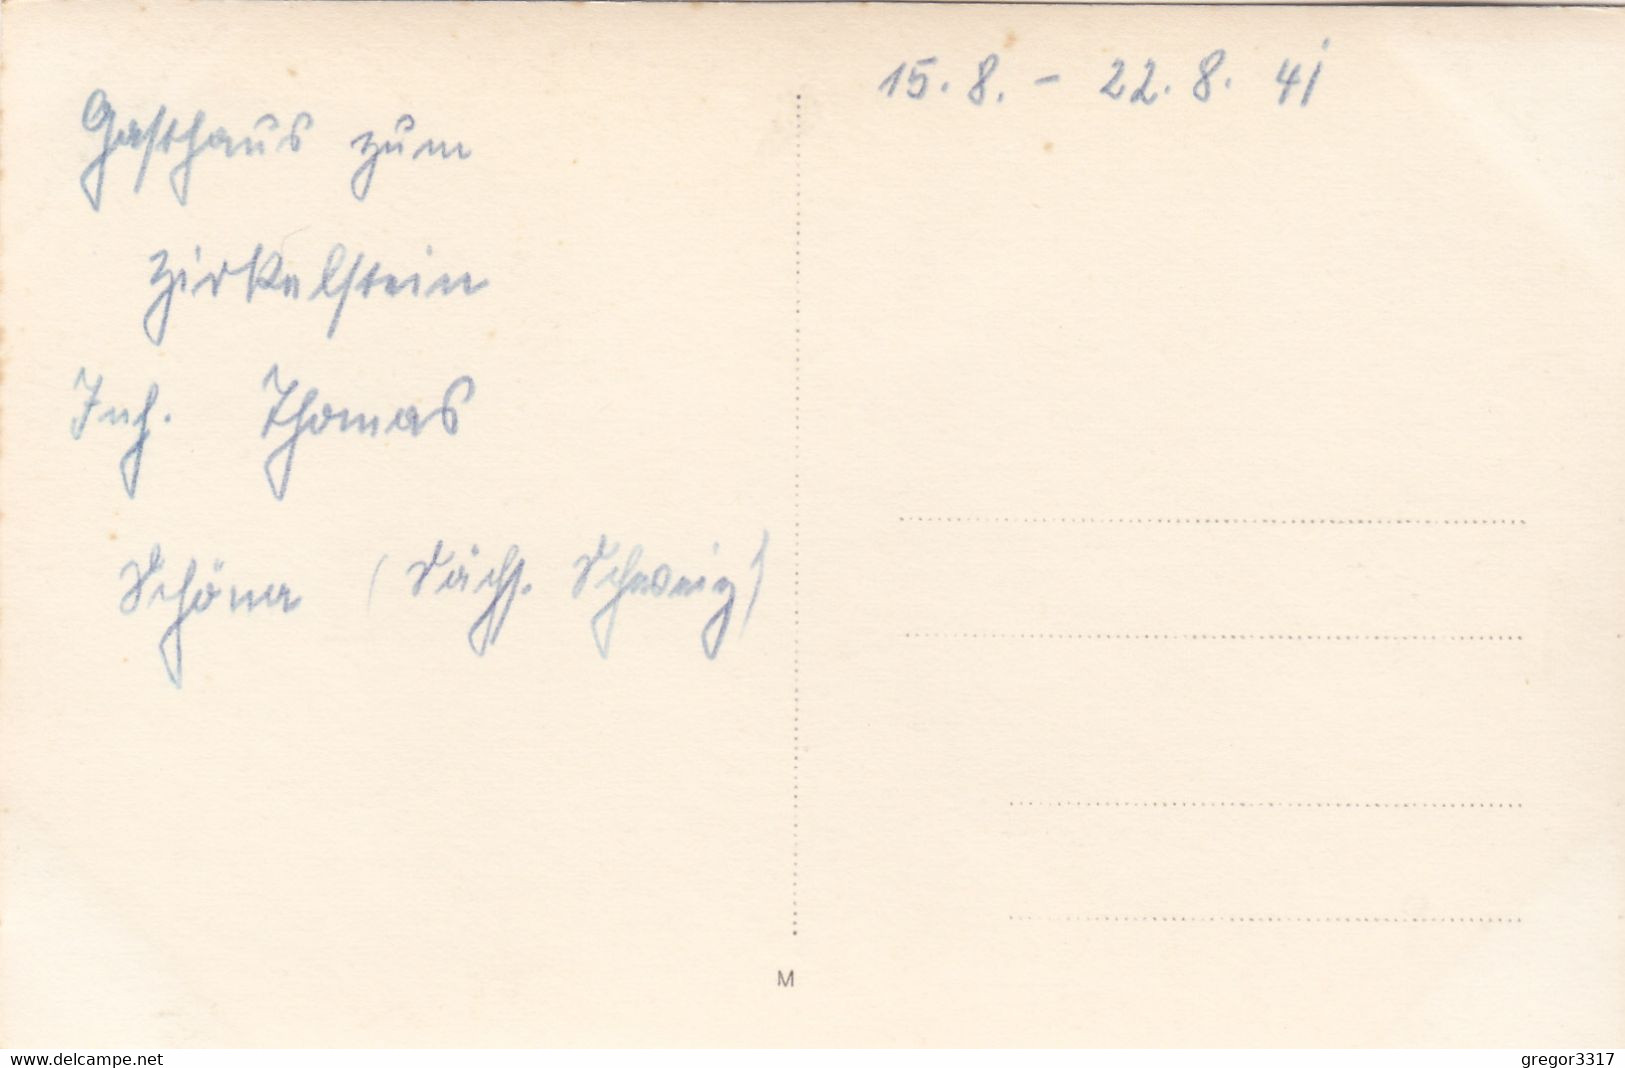 15. 8. - 22. 8. 41
Gasthaus zum
Zirkelstein
Inh. Thomas
Schöna (Sächs. Schweiz)
M
www.delcampe.net
gregor3317